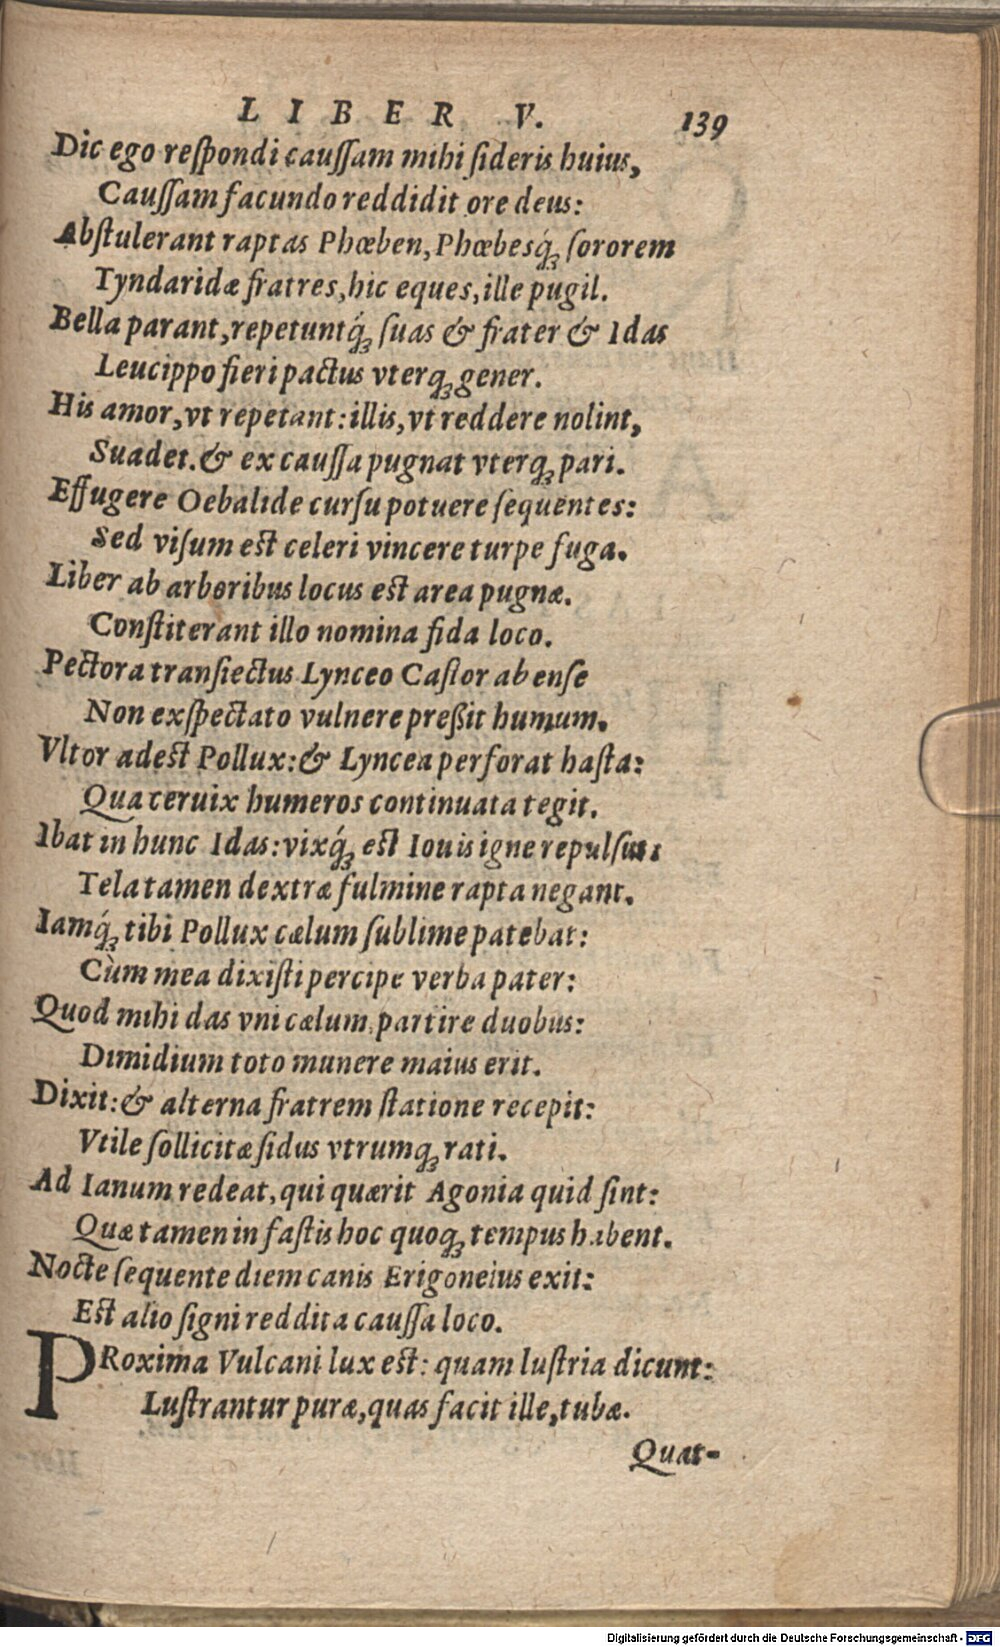 LIBER V. 139
Dic ego reſpondi cauſſam mihi ſideris huius,
Cauſſam facundo reddidit ore deus:
Abſtulerant raptas Phœben, Phœbesq́ꝫ ſororem
Tyndaridæ fratres, hic eques, ille pugil.
Bella parant, repetuntq́ꝫ ſuas & frater & Idas
Leucippo fieri pactus vterqꝫ gener.
His amor, vt repetant: illis, vt reddere nolint,
Suadet. & ex cauſſa pugnat vterqꝫ pari.
Effugere Oebalide curſu potuere ſequentes:
Sed viſum eſt celeri vincere turpe fuga.
Liber ab arboribus locus est area pugnæ.
Conſtiterant illo nomina fida loco.
Pectora transiectus Lynceo Caſtor ab enſe
Non exſpectato vulnere preßit humum.
Vltor adeſt Pollux: & Lyncea perforat haſta:
Qua ceruix humeros continuata tegit.
Ibat in hunc Idas: vixq́ꝫ eſt Iouis igne repulſus:
Tela tamen dextræ fulmine rapta negant.
Iamq́ꝫ tibi Pollux cælum ſublime patebat:
Cùm mea dixiſti percipe verba pater:
Quod mihi das vni cælum partire duobus:
Dimidium toto munere maius erit.
Dixit: & alterna fratrem ſtatione recepit:
Vtile ſollicitæ ſidus vtrumqꝫ rati.
Ad Ianum redeat, qui quærit Agonia quid ſint:
Quæ tamen in faſtis hoc quoqꝫ tempus habent.
Nocte ſequente diem canis Erigoneius exit:
Eſt alio ſigni reddita cauſſa loco.
PRoxima Vulcani lux eſt: quam luſtria dicunt:
Luſtrantur puræ, quas facit ille, tubæ.
Quat-
Digitalisierung gefördert durch die Deutsche Forschungsgemeinschaft - DFG